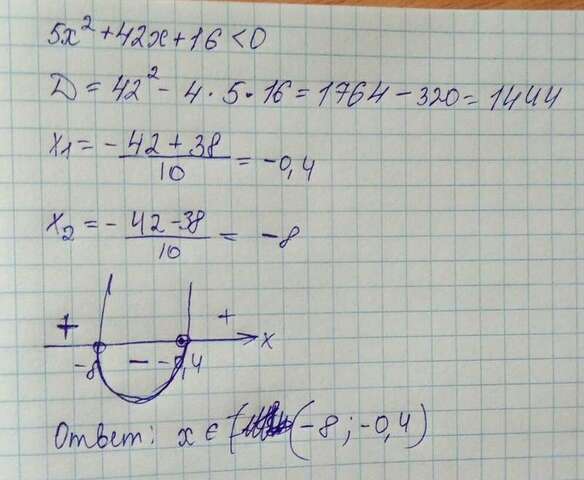 5x² + 42x + 16 < 0
D = 42² - 4 · 5 · 16 = 1764 - 320 = 1444
x₁ = - 42 + 38 / 10 = -0,4
x₂ = - 42 - 38 / 10 = -8
+ - + x
-8 -0,4
Ответ: x ∈ [ (-8 ; -0,4)